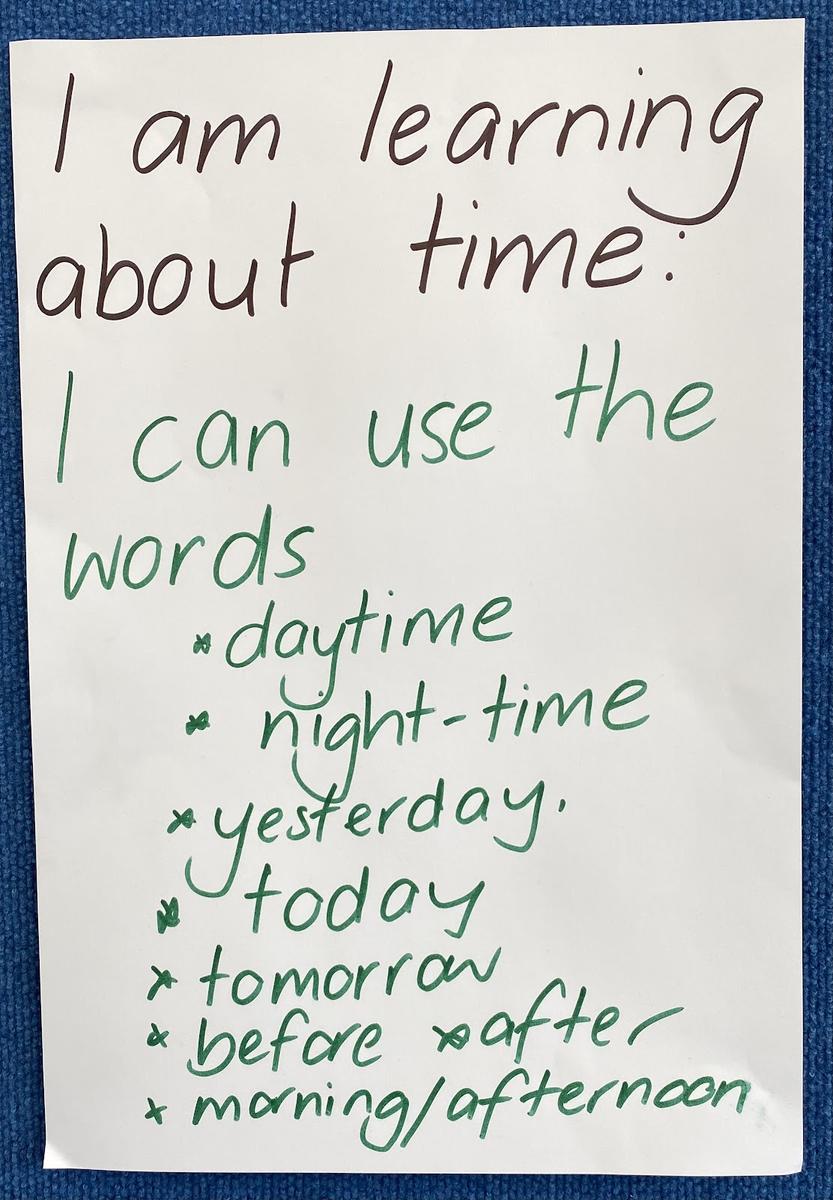 I am learning
about time:
I can use the
words
* daytime
* night-time
* yesterday.
* today
* tomorrow
* before * after
* morning/afternoon